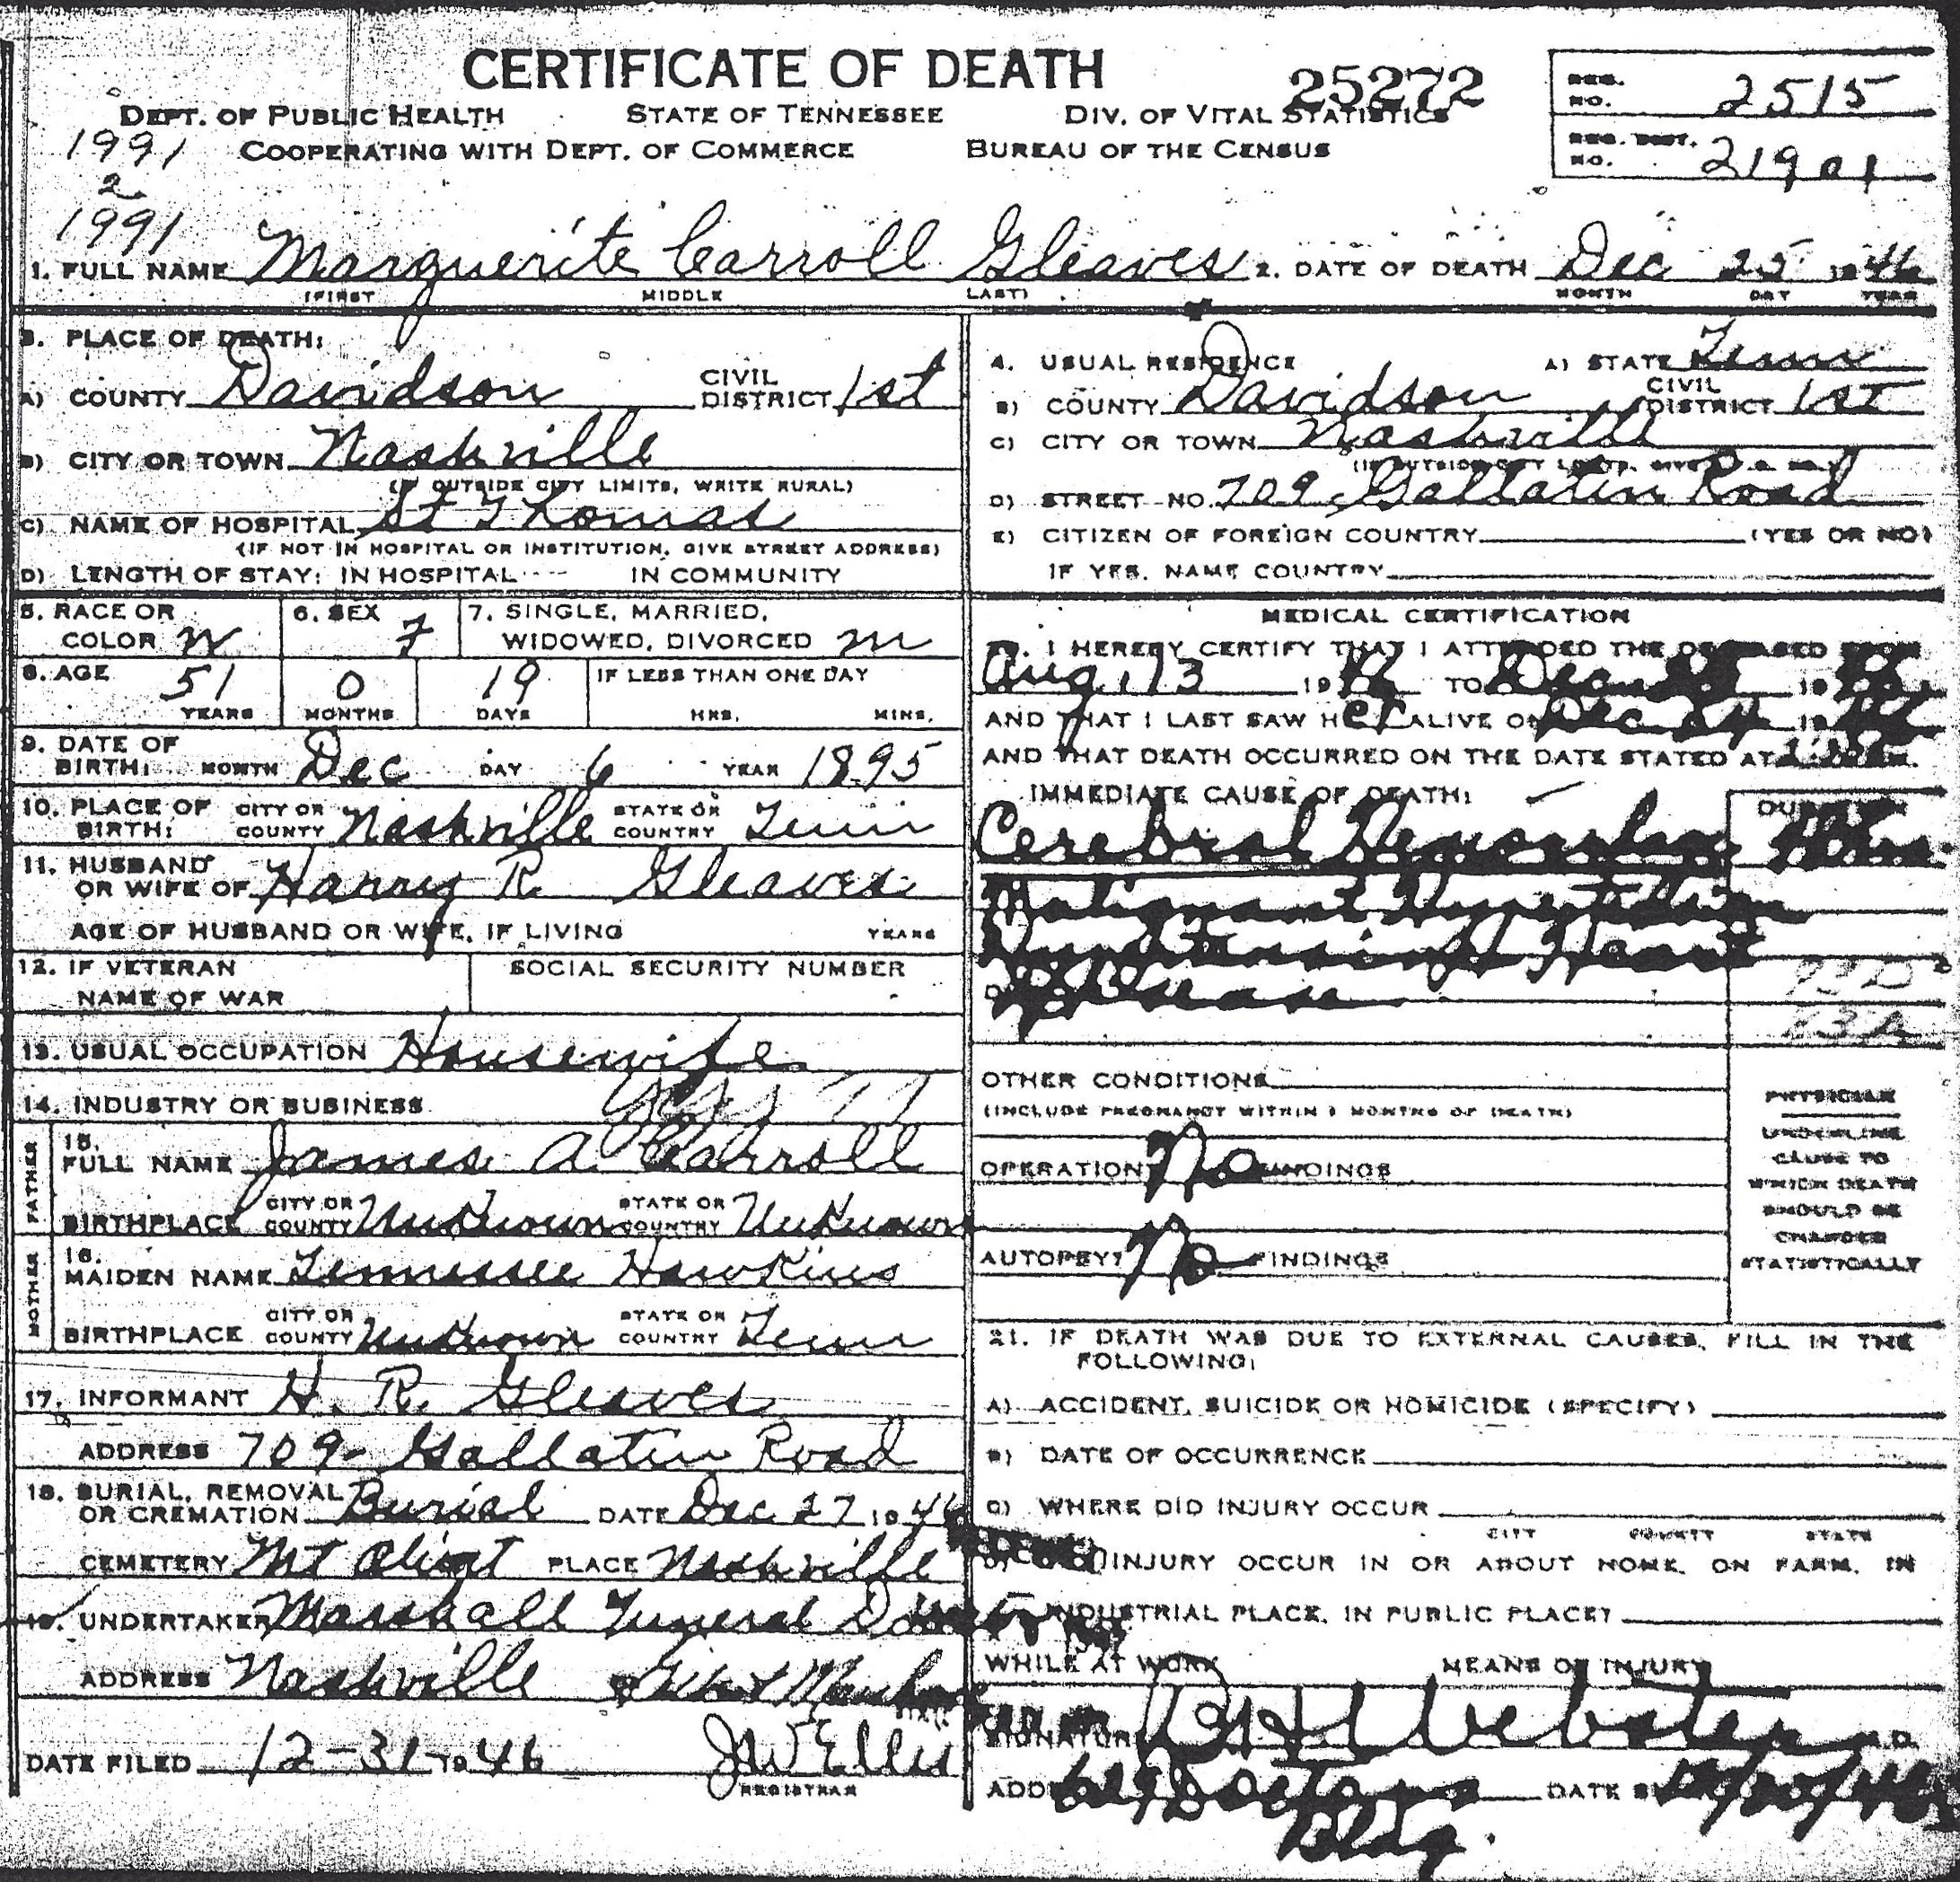 CERTIFICATE OF DEATH
25272
DEPT. OF PUBLIC HEALTH STATE OF TENNESSEE DIV. OF VITAL STATISTICS
COOPERATING WITH DEPT. OF COMMERCE BUREAU OF THE CENSUS
REG. NO. 2515
REG. DIST. NO. 21901
1991
2
1991
1. FULL NAME Marguerite Carroll Gleaves 2. DATE OF DEATH Dec 25 1946
(FIRST MIDDLE LAST) MONTH DAY YEAR
3. PLACE OF DEATH:
A) COUNTY Davidson CIVIL DISTRICT 1st
B) CITY OR TOWN Nashville
(IF OUTSIDE CITY LIMITS, WRITE RURAL)
C) NAME OF HOSPITAL St Thomas
(IF NOT IN HOSPITAL OR INSTITUTION, GIVE STREET ADDRESS)
D) LENGTH OF STAY: IN HOSPITAL IN COMMUNITY
4. USUAL RESIDENCE A) STATE Tenn
B) COUNTY Davidson CIVIL DISTRICT 1st
C) CITY OR TOWN Nashville
D) STREET NO. 709 Gallatin Road
E) CITIZEN OF FOREIGN COUNTRY (YES OR NO)
IF YES, NAME COUNTRY
5. RACE OR COLOR W 6. SEX F 7. SINGLE, MARRIED, WIDOWED, DIVORCED M
8. AGE 51 YEARS 0 MONTHS 19 DAYS IF LESS THAN ONE DAY HRS. MINS.
9. DATE OF BIRTH: MONTH Dec DAY 6 YEAR 1895
10. PLACE OF BIRTH: CITY OR COUNTY Nashville STATE OR COUNTRY Tenn
11. HUSBAND OR WIFE OF Harry R Gleaves
AGE OF HUSBAND OR WIFE, IF LIVING YEARS
12. IF VETERAN NAME OF WAR SOCIAL SECURITY NUMBER
13. USUAL OCCUPATION Housewife
14. INDUSTRY OR BUSINESS
FATHER
15. FULL NAME James A. Carroll
BIRTHPLACE CITY OR COUNTY Unknown STATE OR COUNTRY Unknown
MOTHER
16. MAIDEN NAME Tennessee Hawkins
BIRTHPLACE CITY OR COUNTY Unknown STATE OR COUNTRY Tenn
17. INFORMANT H. R. Gleaves
ADDRESS 709 Gallatin Road
18. BURIAL, REMOVAL OR CREMATION Burial DATE Dec 27 1946
CEMETERY Mt Olivet PLACE Nashville
19. UNDERTAKER Marshall Funeral
ADDRESS Nashville
DATE FILED 12-31-1946 JW Ellis
REGISTRAR
MEDICAL CERTIFICATION
I HEREBY CERTIFY THAT I ATTENDED THE DECEASED FROM
Aug, 13 1946 TO Dec 25 1946
AND THAT I LAST SAW HER ALIVE ON Dec 24 1946
AND THAT DEATH OCCURRED ON THE DATE STATED AT
IMMEDIATE CAUSE OF DEATH: DURATION
Cerebral Hemorrhage
Malignant Hypertension
Hypertensive Heart
Disease
OTHER CONDITIONS
(INCLUDE PREGNANCY WITHIN 3 MONTHS OF DEATH)
OPERATION? No FINDINGS
AUTOPSY? No FINDINGS
PHYSICIAN
UNDERLINE
CAUSE TO
WHICH DEATH
SHOULD BE
CHARGED
STATISTICALLY
21. IF DEATH WAS DUE TO EXTERNAL CAUSES, FILL IN THE
FOLLOWING:
A) ACCIDENT, SUICIDE OR HOMICIDE (SPECIFY)
B) DATE OF OCCURRENCE
C) WHERE DID INJURY OCCUR
CITY COUNTY STATE
D) INJURY OCCUR IN OR ABOUT HOME, ON FARM, IN
INDUSTRIAL PLACE, IN PUBLIC PLACE?
WHILE AT WORK MEANS OF INJURY
SIGNATURE Webster M.D.
ADD 629 Doctors DATE 12/30/46
Bldg.